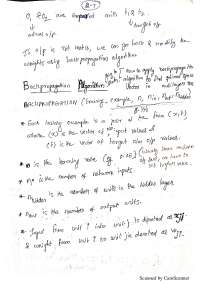 O₁ & O₂ are compared with t₁ & t₂
actual o/p
target o/p
If o/p is not match, we can go back & modify the
weights using backpropagation algorithm
Backpropagation Algorithm
How to apply backpropagation
algorithm to find optimal
in multilayer
BACKPROPAGATION (training_example, η, nin, nout, nhidden)
* Each training example is a pair of the form (x, t)
where (x) is the vector of n/w input values
(t) is the vector of target n/w o/p values.
* η is the learning rate (eg. 0.05)
* ni is the number of network inputs.
* nhidden is the number of units in the hidden layer
* nout is the number of output units.
* Input from unit i into unit j is denoted as xji
& weight from unit i to unit j is denoted as wji
Scanned by CamScanner